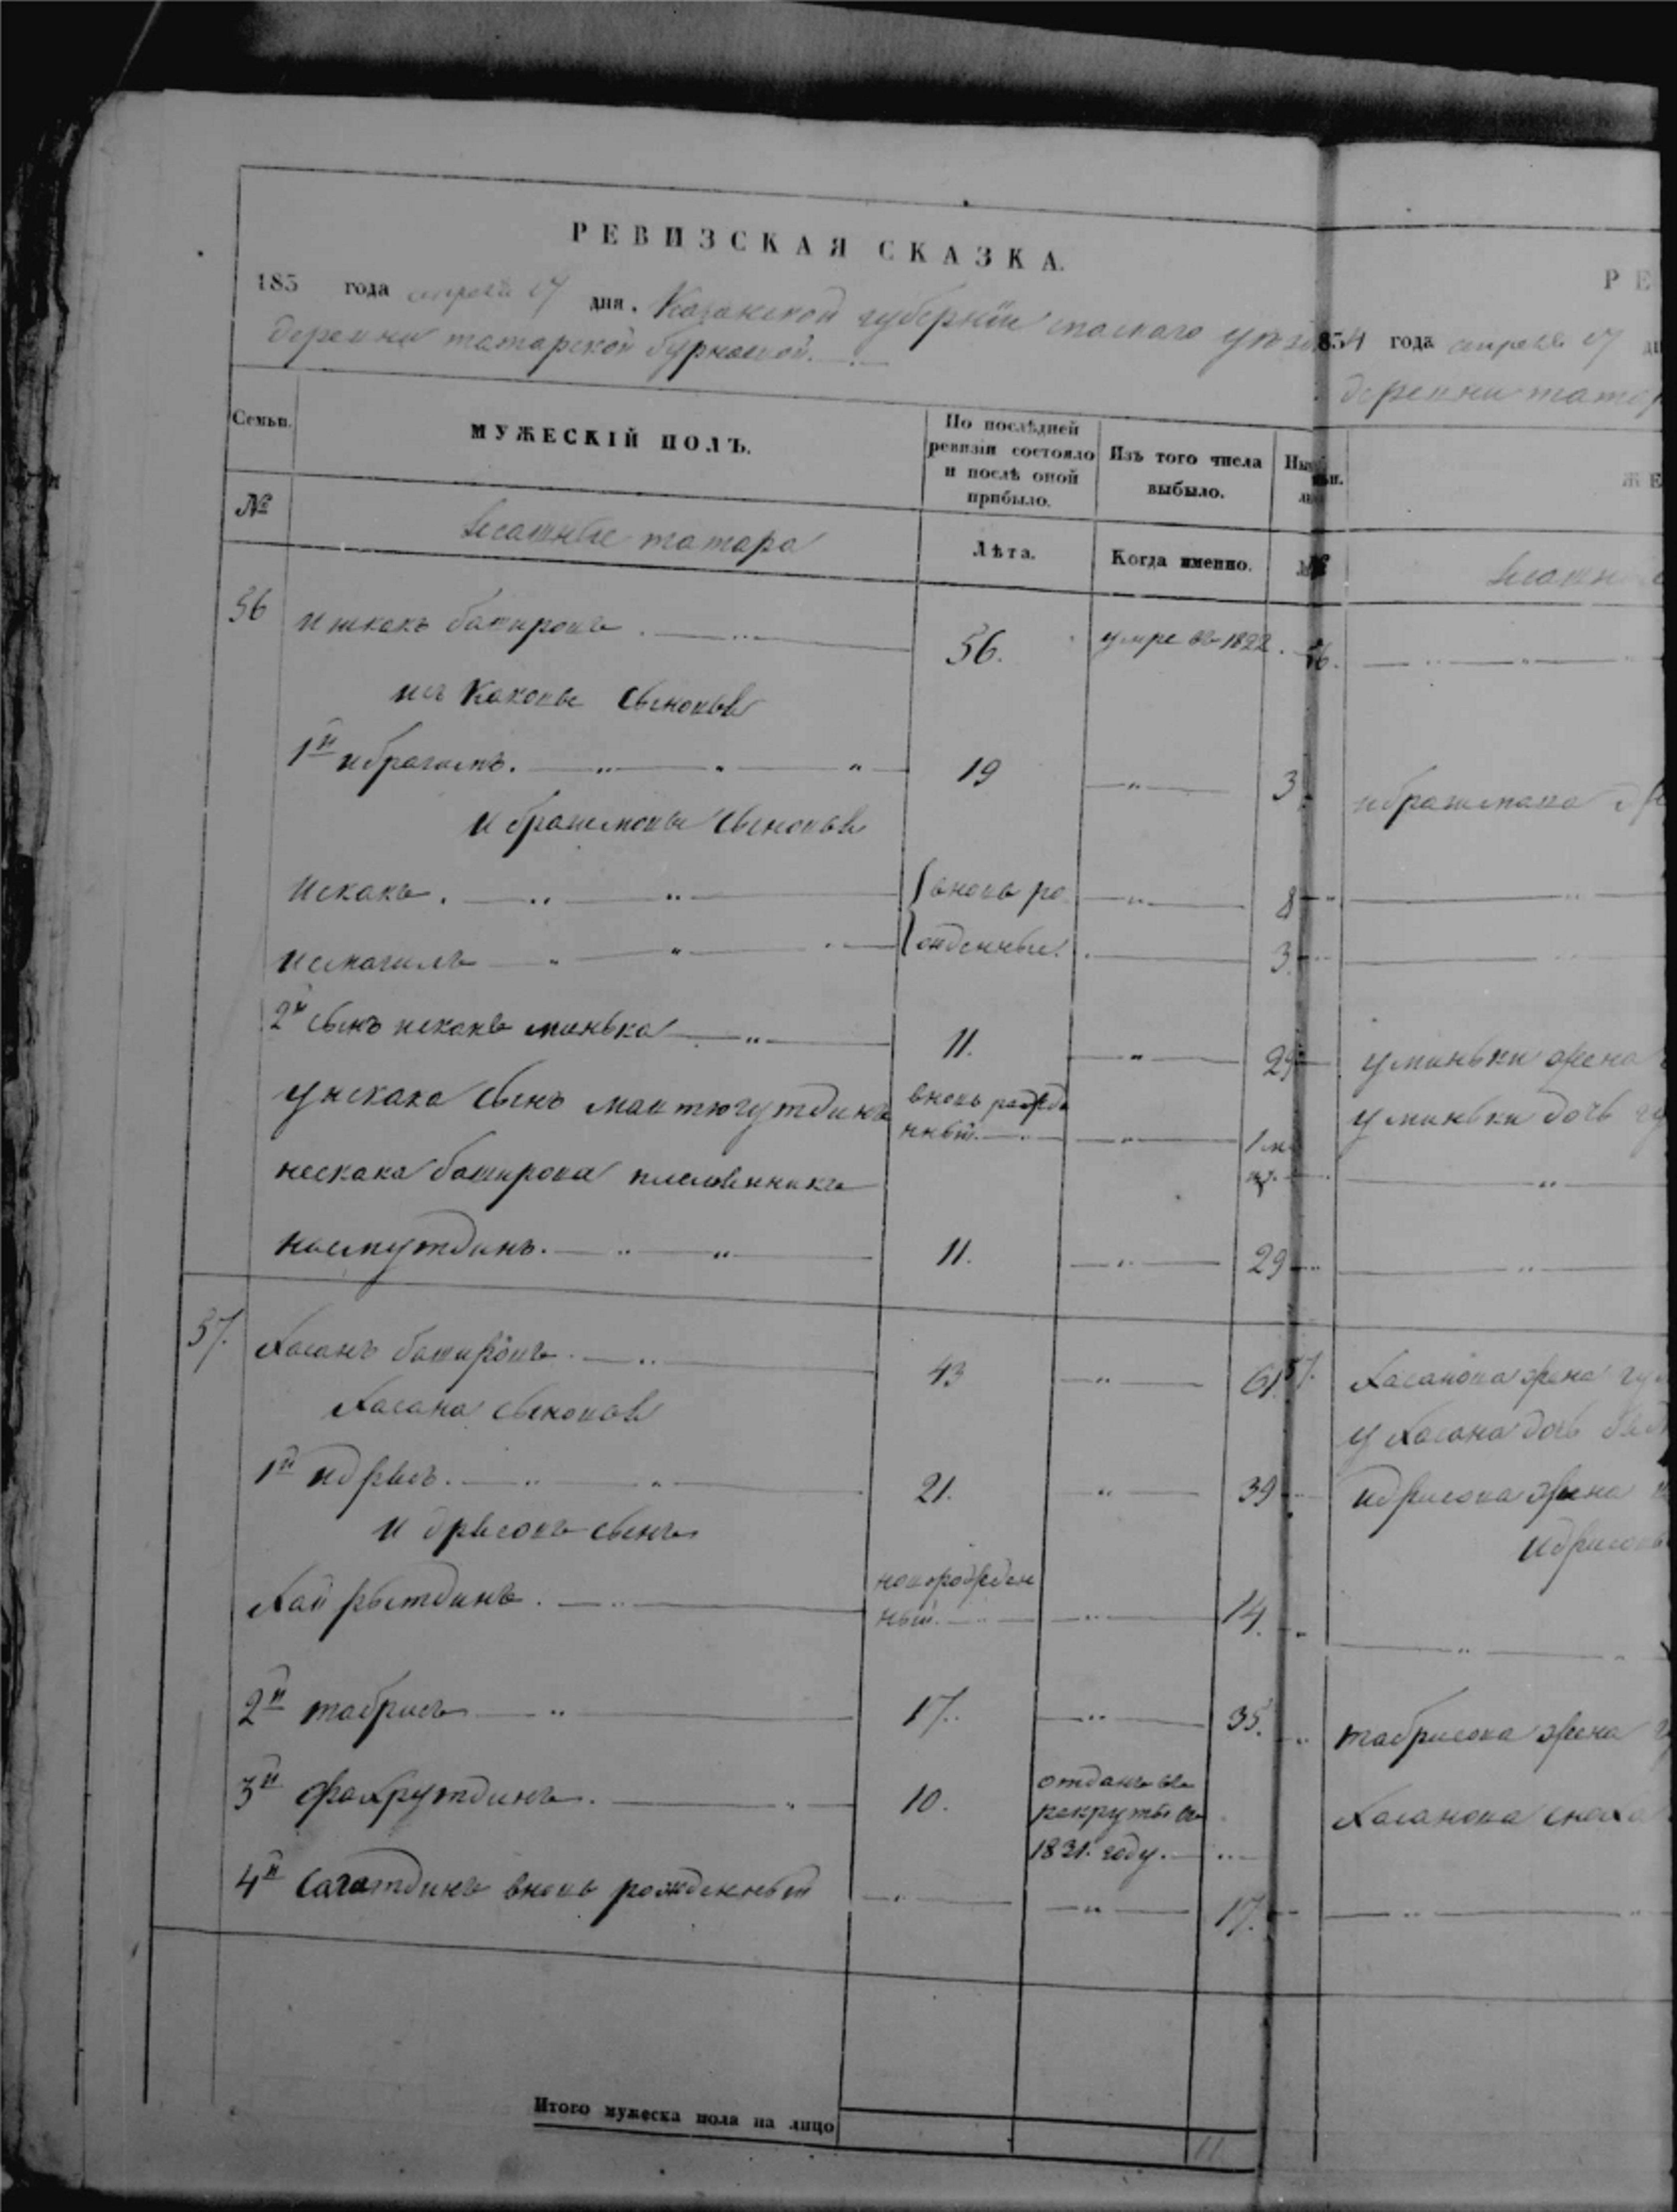 РЕВИЗСКАЯ СКАЗКА.
185 года апреля 17 дня. Казанской губернии спаскаго
деревни татарской бурнаевой.
Семьи.
МУЖЕСКІЙ ПОЛЪ.
По послѣдней ревизіи состояло и послѣ оной прибыло.
Изъ того числа выбыло.
№
Ясашные татара
Лѣта.
Когда именно.
36 Искакъ батировъ 56. умре въ 1822.
искаковы сыновья
1й ибрагимъ. 19 " 3
ибрагимовы сыновья
Искакъ. {вновь ро " 8
исмагилъ {жденные. 3
2й сынъ искака минька 11. " 29
у искака сынъ вновь рожде
нный. " 1 м
искака батирова племянникъ
насмутдинъ. 11. " 29
37. Хасанъ батировъ 43 " 61.
Хасана сыновья
1й идрысъ. 21. " 39
идрысовъ сынъ
Хайрытдинъ. новорожден
ный. " 14.
2й табрисъ 17. " 35.
3й фахрутдинъ. 10. отданъ въ
рекруты въ
1831. году.
4й сагатдинъ вновь рожденный " " 17.
Итого мужеска пола на лицо 11
РЕ
854 года апреля 17 дн
деревни татар
ЖЕ
Ясашн
ибрагимова
у миньки жена
у миньки дочь
Хасанова жена
у Хасана дочь
идрисова жена
идрисов
табрисова жена
Хасанова сноха